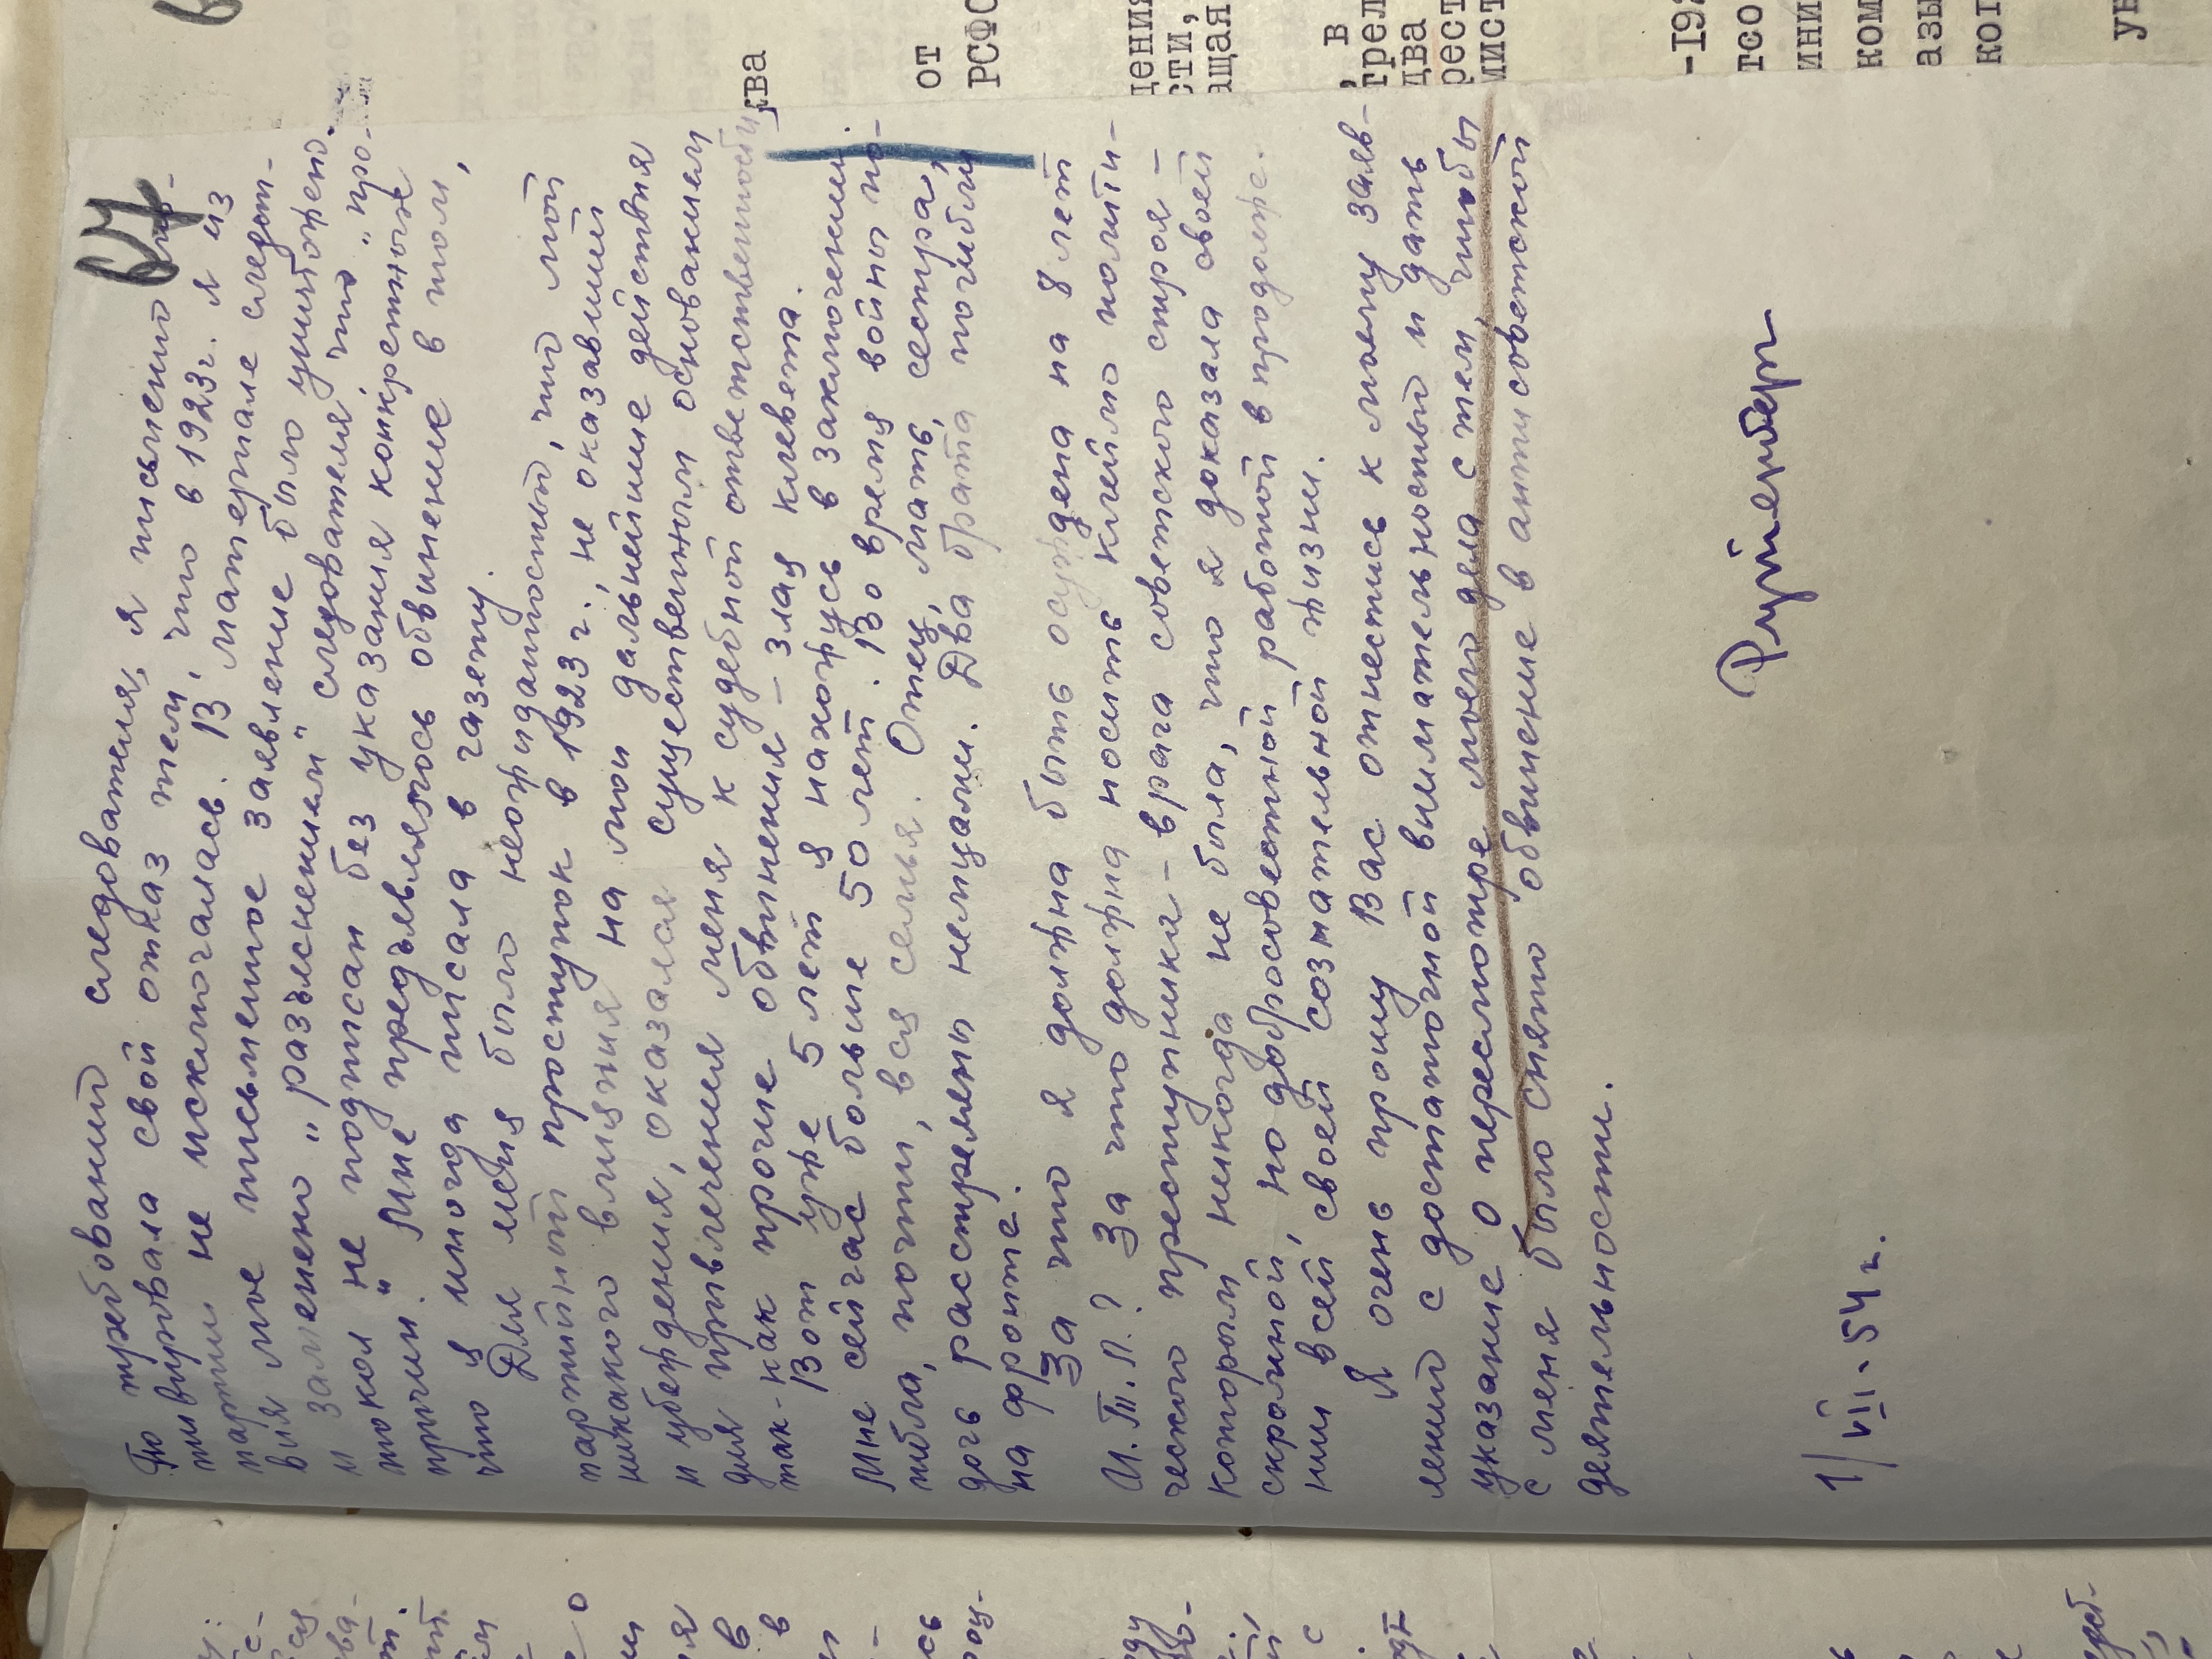 67
По требований следователя, я письменно мо-
тивировала свой отказ тем, что в 1923г. я из
партии не исключалась. В материале следст-
вия мое письменное заявление было уничтожено
и заменено "разъяснением" следователя что "про-
токол не подписан без указания конкретных
причин." Мне предъявлялось обвинение в том,
что я иногда писала в газету.
Для меня было неожиданностью, что мой
партийный проступок в 1923 г., не оказавший
никакого влияния на мои дальнейшие действия
и убеждения, оказался существенным основанием
для привлечения меня к судебной ответственности,
так-как прочие обвинения – злая клевета.
Вот уже 5 лет я нахожусь в заключении.
Мне сейчас больше 50 лет. Во время войны по-
гибла, почти, вся семья. Отец, мать, сестра,
дочь расстреляны немцами. Два брата погибли
на фронте.
За что я должна быть осуждена на 8 лет
И.Т.Л.? За что должна носить клеймо полити-
ческого преступника – врага советского строя –
которым никогда не была, что я доказала своей
скромной, но добросовестной работой в продолже.
нии всей своей сознательной жизни.
Я очень прошу Вас отнестись к моему заяв-
лений с достаточной внимательностью и дать
указание о пересмотре моего дела с тем, чтобы
с меня было снято обвинение в антисоветской
деятельности.
1/VII-54 г. Рутенберг
ква
от
РСФС
дения
сти,
ащая
, в
трел
два
рест
мист
-192
тсо
ини
ком
азы
ког
ун